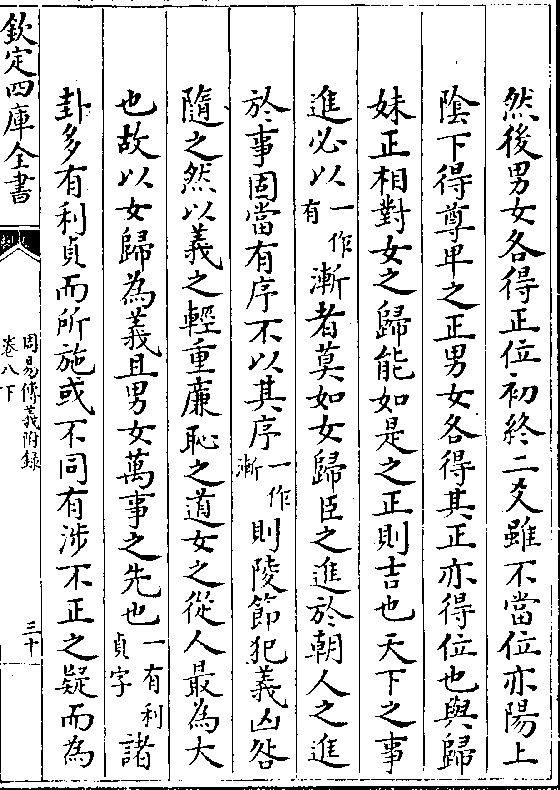 然後男女各得正位初終二爻雖不當位亦陽上
陰下得尊卑之正男女各得其正亦得位也與歸
妹正相對女之歸能如是之正則吉也天下之事
進必以一作有漸者莫如女歸臣之進於朝人之進
於事固當有序不以其序一作漸則陵節犯義凶咎
隨之然以義之輕重廉恥之道女之從人最為大
也故以女歸為義且男女萬事之先也一有利貞字諸
卦多有利貞而所施或不同有涉不正之疑而為
欽定四庫全書
周易傳義附錄
卷八下
三十